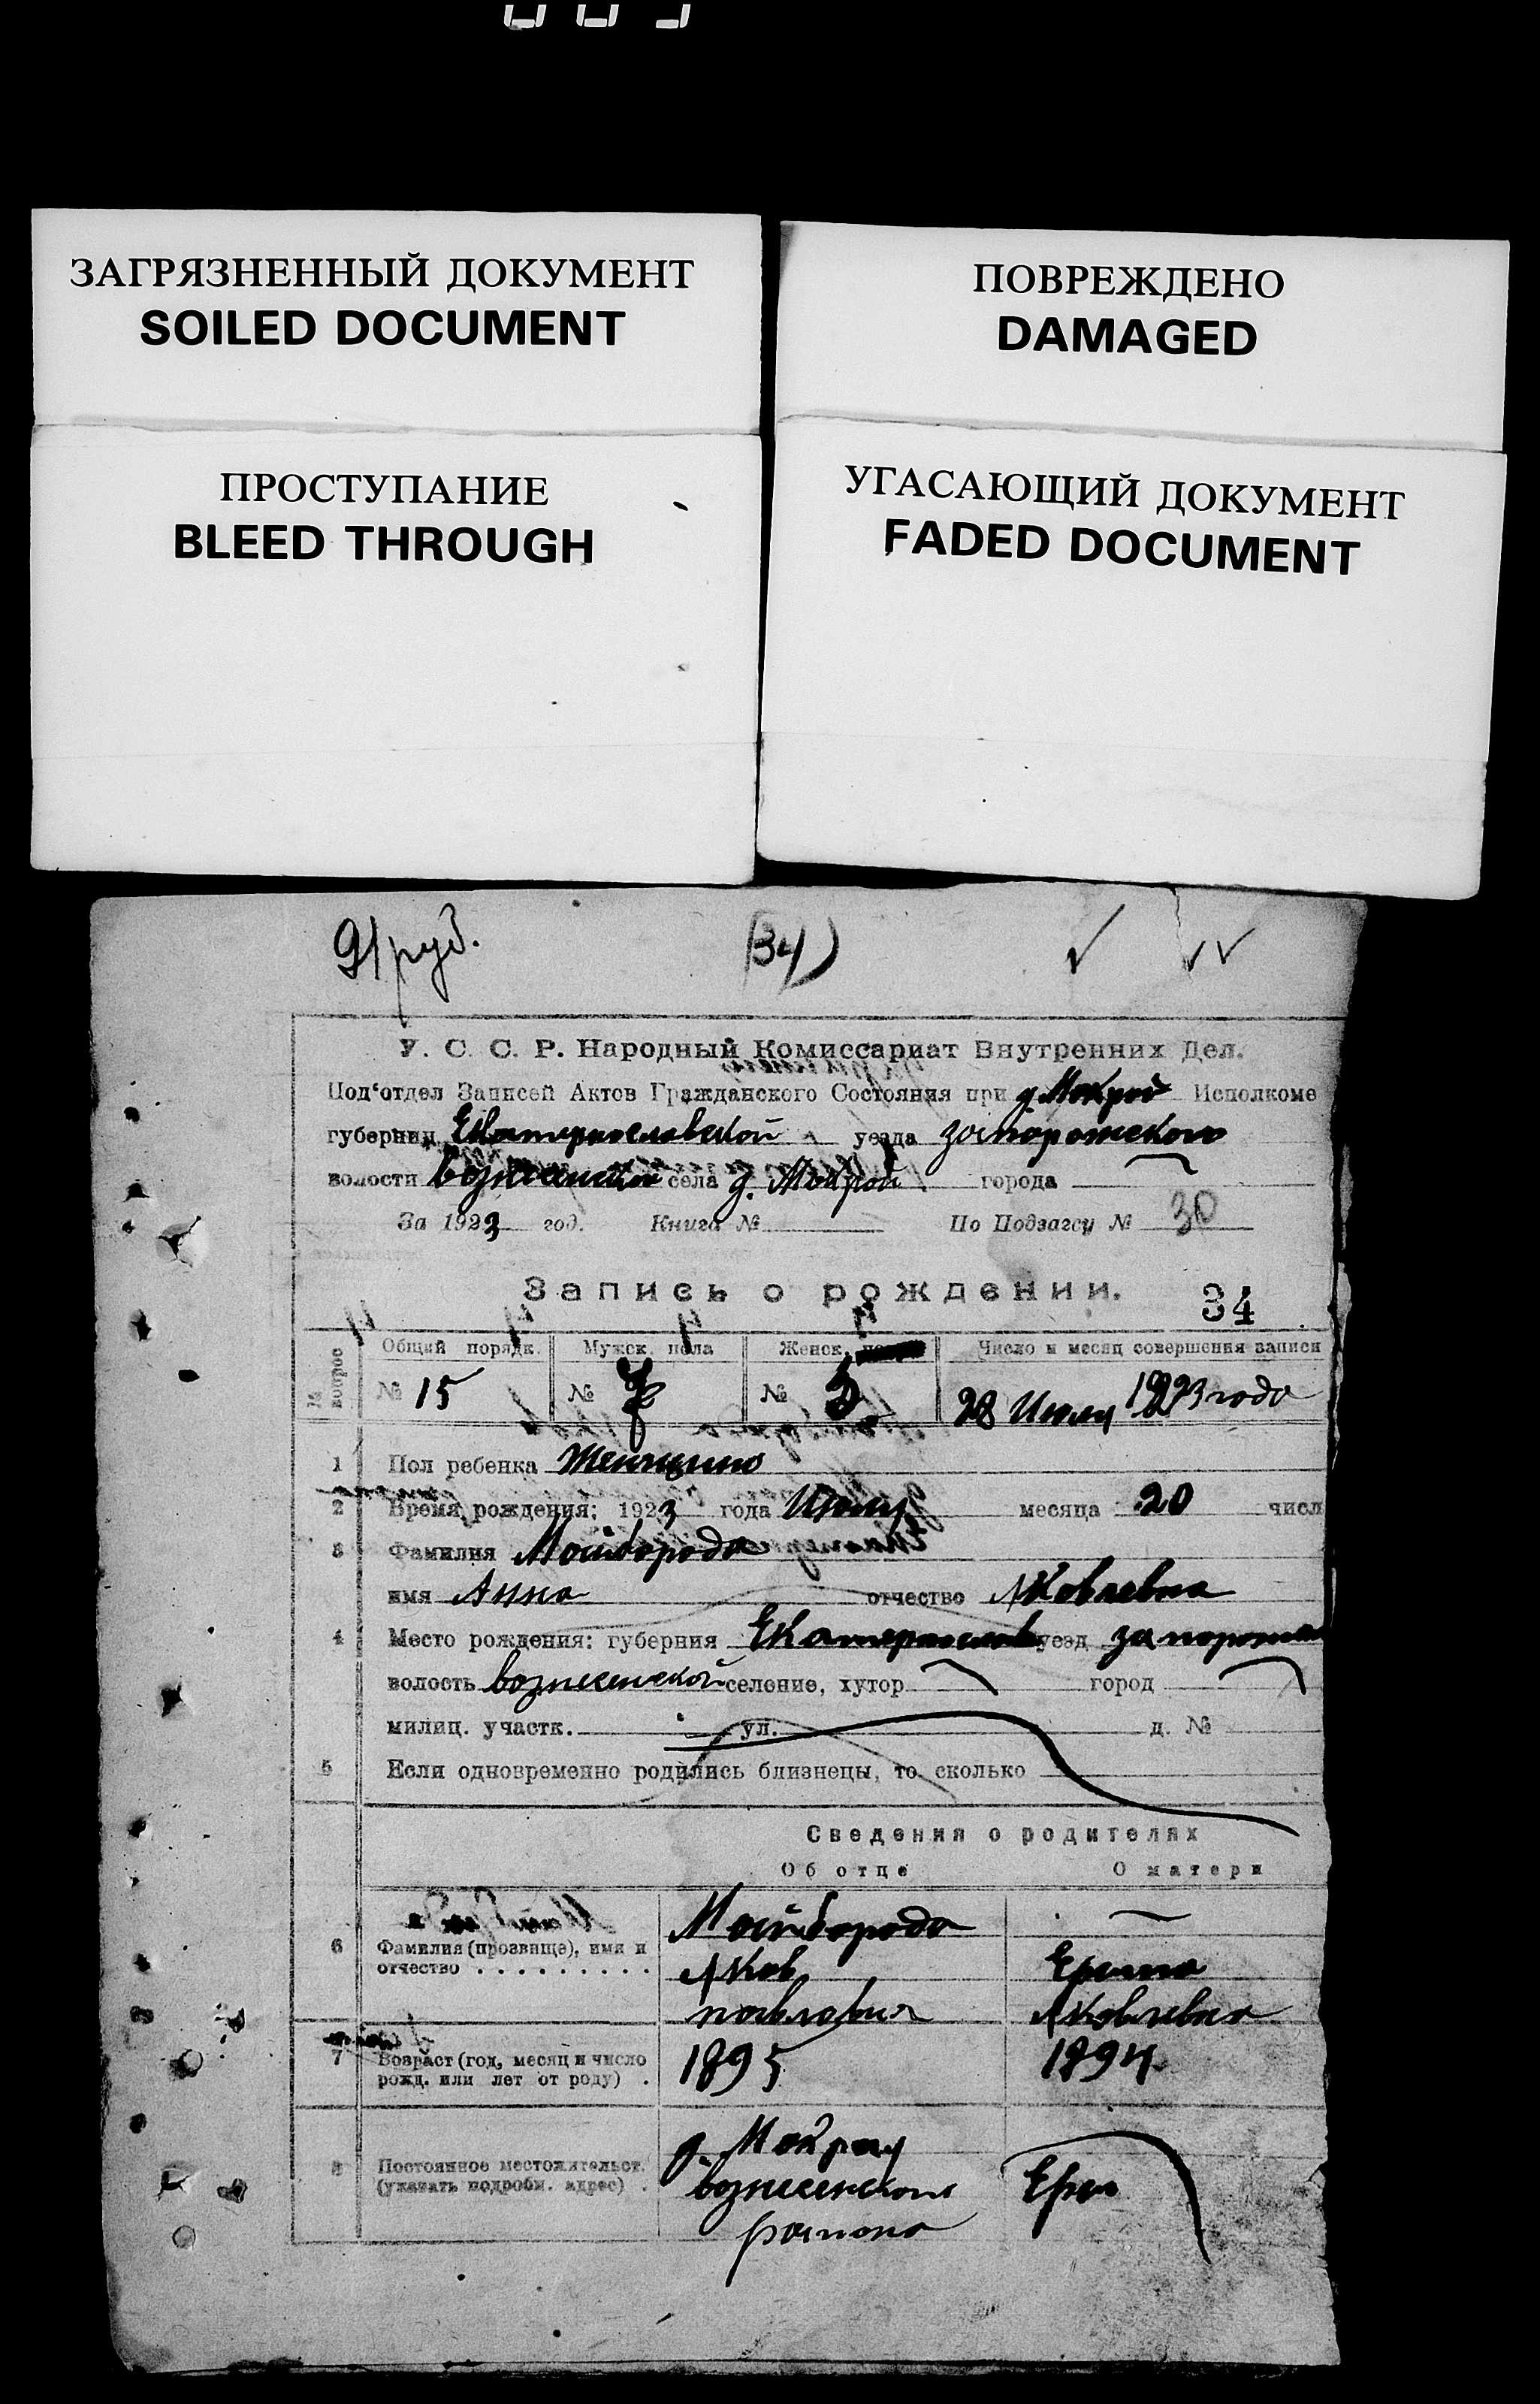 ЗАГРЯЗНЕННЫЙ ДОКУМЕНТ
SOILED DOCUMENT
ПОВРЕЖДЕНО
DAMAGED
ПРОСТУПАНИЕ
BLEED THROUGH
УГАСАЮЩИЙ ДОКУМЕНТ
FADED DOCUMENT
34)
У. С. С. Р. Народный Комиссариат Внутренних Дел.
Под'отдел Записей Актов Гражданского Состояния при д. Мокрой Исполкоме
губернии Екатеринославской уезда запорожского
волости вознесенской села д. Мокрой города
За 1923 год. Книга № По Подзагсу № 30
Запись о рождении. 34
№ вопрос Общий порядк. Мужск. пола Женск. Число и месяц совершения записи
№ 15 № № 5 28 Июля 1923 года
1 Пол ребенка Женщина
2 Время рождения: 1923 года Июля месяца 20 числ
3 Фамилия Майборода
имя Анна отчество Яковлевна
4 Место рождения: губерния Екатеринослав уезд запорож
волость вознесенской селение, хутор город
милиц. участк. ул. д. №
5 Если одновременно родились близнецы, то сколько
Сведения о родителях
Об отце О матери
Майборода
6 Фамилия (прозвище), имя и
отчество . . . . . . . . . Яков
Яковлевна
7 Возраст (год, месяц и число 1895 1894
рожд. или лет от роду) .
д. Мокрая
8 Постоянное местожительст. вознесенского
(указать подробн. адрес) . района